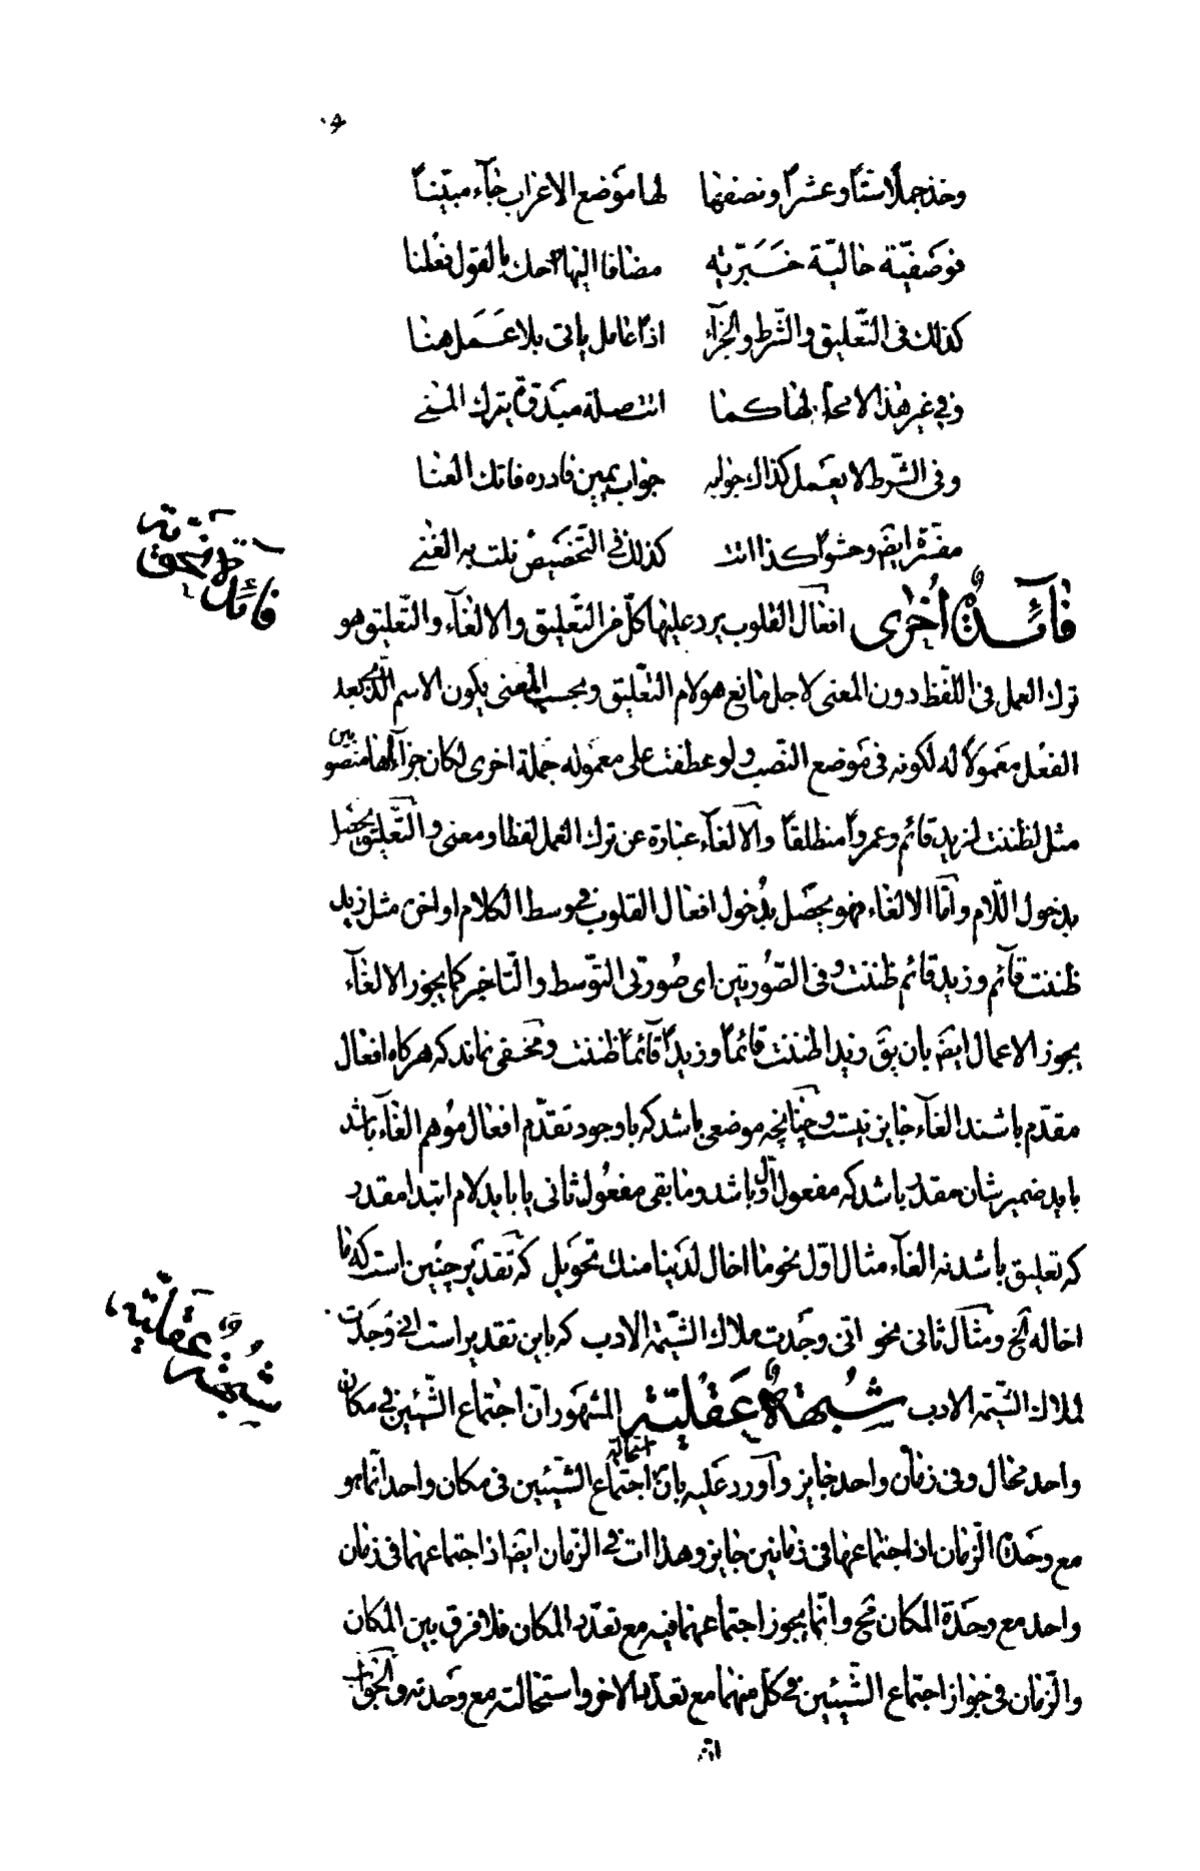 وخذ جملا ستا وعشرا ونصفها لها موضع الاعراب جاء مبينا
فوصفية حالية خبرية مضافا اليها احك بالقول معلنا
كذلك في التعليق والشرط والجزاء اذا عامل ياتى بلا عمل هنا
وفي غير هذا لا محل لها كما اتت صلة مبدوة بترك المنى
وفى الشرط لا يعمل كذاك جوابه جواب يمين فادره فاتك العنا
مفسرة ايضا وحشوا كذا اتت كذلك فى التخصيص نلت به الغنى
فائدة نحوية
فائدة اخرى افعال القلوب يرد عليها كل من التعليق والالغاء والتعليق هو
ترك العمل فى اللفظ دون المعنى لاجل مانع هو لام التعليق وبحسب المعنى يكون الاسم الذى بعد
الفعل معمولا له لكونه فى موضع النصب ولو عطفت على معموله جملة اخرى لكان جزآها منصوبين
مثل لظننت لزيد قائم وعمروا منطلقا والالغاء عبارة عن ترك العمل لفظا ومعنى والتعليق يحصل
بدخول اللام واما الالغاء فهو يحصل بدخول افعال القلوب فى وسط الكلام او اخره مثل زيد
ظننت قائم وزيد قائم ظننت وفى الصورتين اى صورتى التوسط والتاخير كما يجوز الالغاء
يجوز الاعمال ايضا بان يق زيدا ظننت قائما وزيدا قائما ظننت ومخفى نماند كه هركاه افعال
مقدم باشند الغاء جايز نيست وچنانچه موضعى باشد كه باوجود تقدم افعال موهم الغاء باشد
بايد ضمير شان مقدر باشد كه مفعول اول باشد وما بقى مفعول ثانى يا بايد لام ابتدا مقدر
كه تعليق باشد نه الغاء مثال اول نحو ما اخال لدينا منك تحويل كه تقدير چنين است كه ما
اخاله الخ ومثال ثانى نحو انى وجدت ملاك الشيمة الادب كه باين تقدير است انى وجدت
لملاك الشيمة الادب شبهة عقلية المشهور ان اجتماع الشيئين فى مكان
شبهة عقلية
واحد محال وفى زمان واحد جايز واورد عليه بان استحالة اجتماع الشيئين فى مكان واحد انما هو
مع وحدة الزمان اذ اجتماعهما فى زمانين جايز وهذا ات فى الزمان ايضا اذ اجتماعهما فى زمان
واحد مع وحدة المكان مح وانما يجوز اجتماعهما فيه مع تعدد المكان فلا فرق بين المكان
والزمان فى جواز اجتماع الشيئين فى كل منهما مع تعدد الاخر واستحالته مع وحدته والجواب
ان